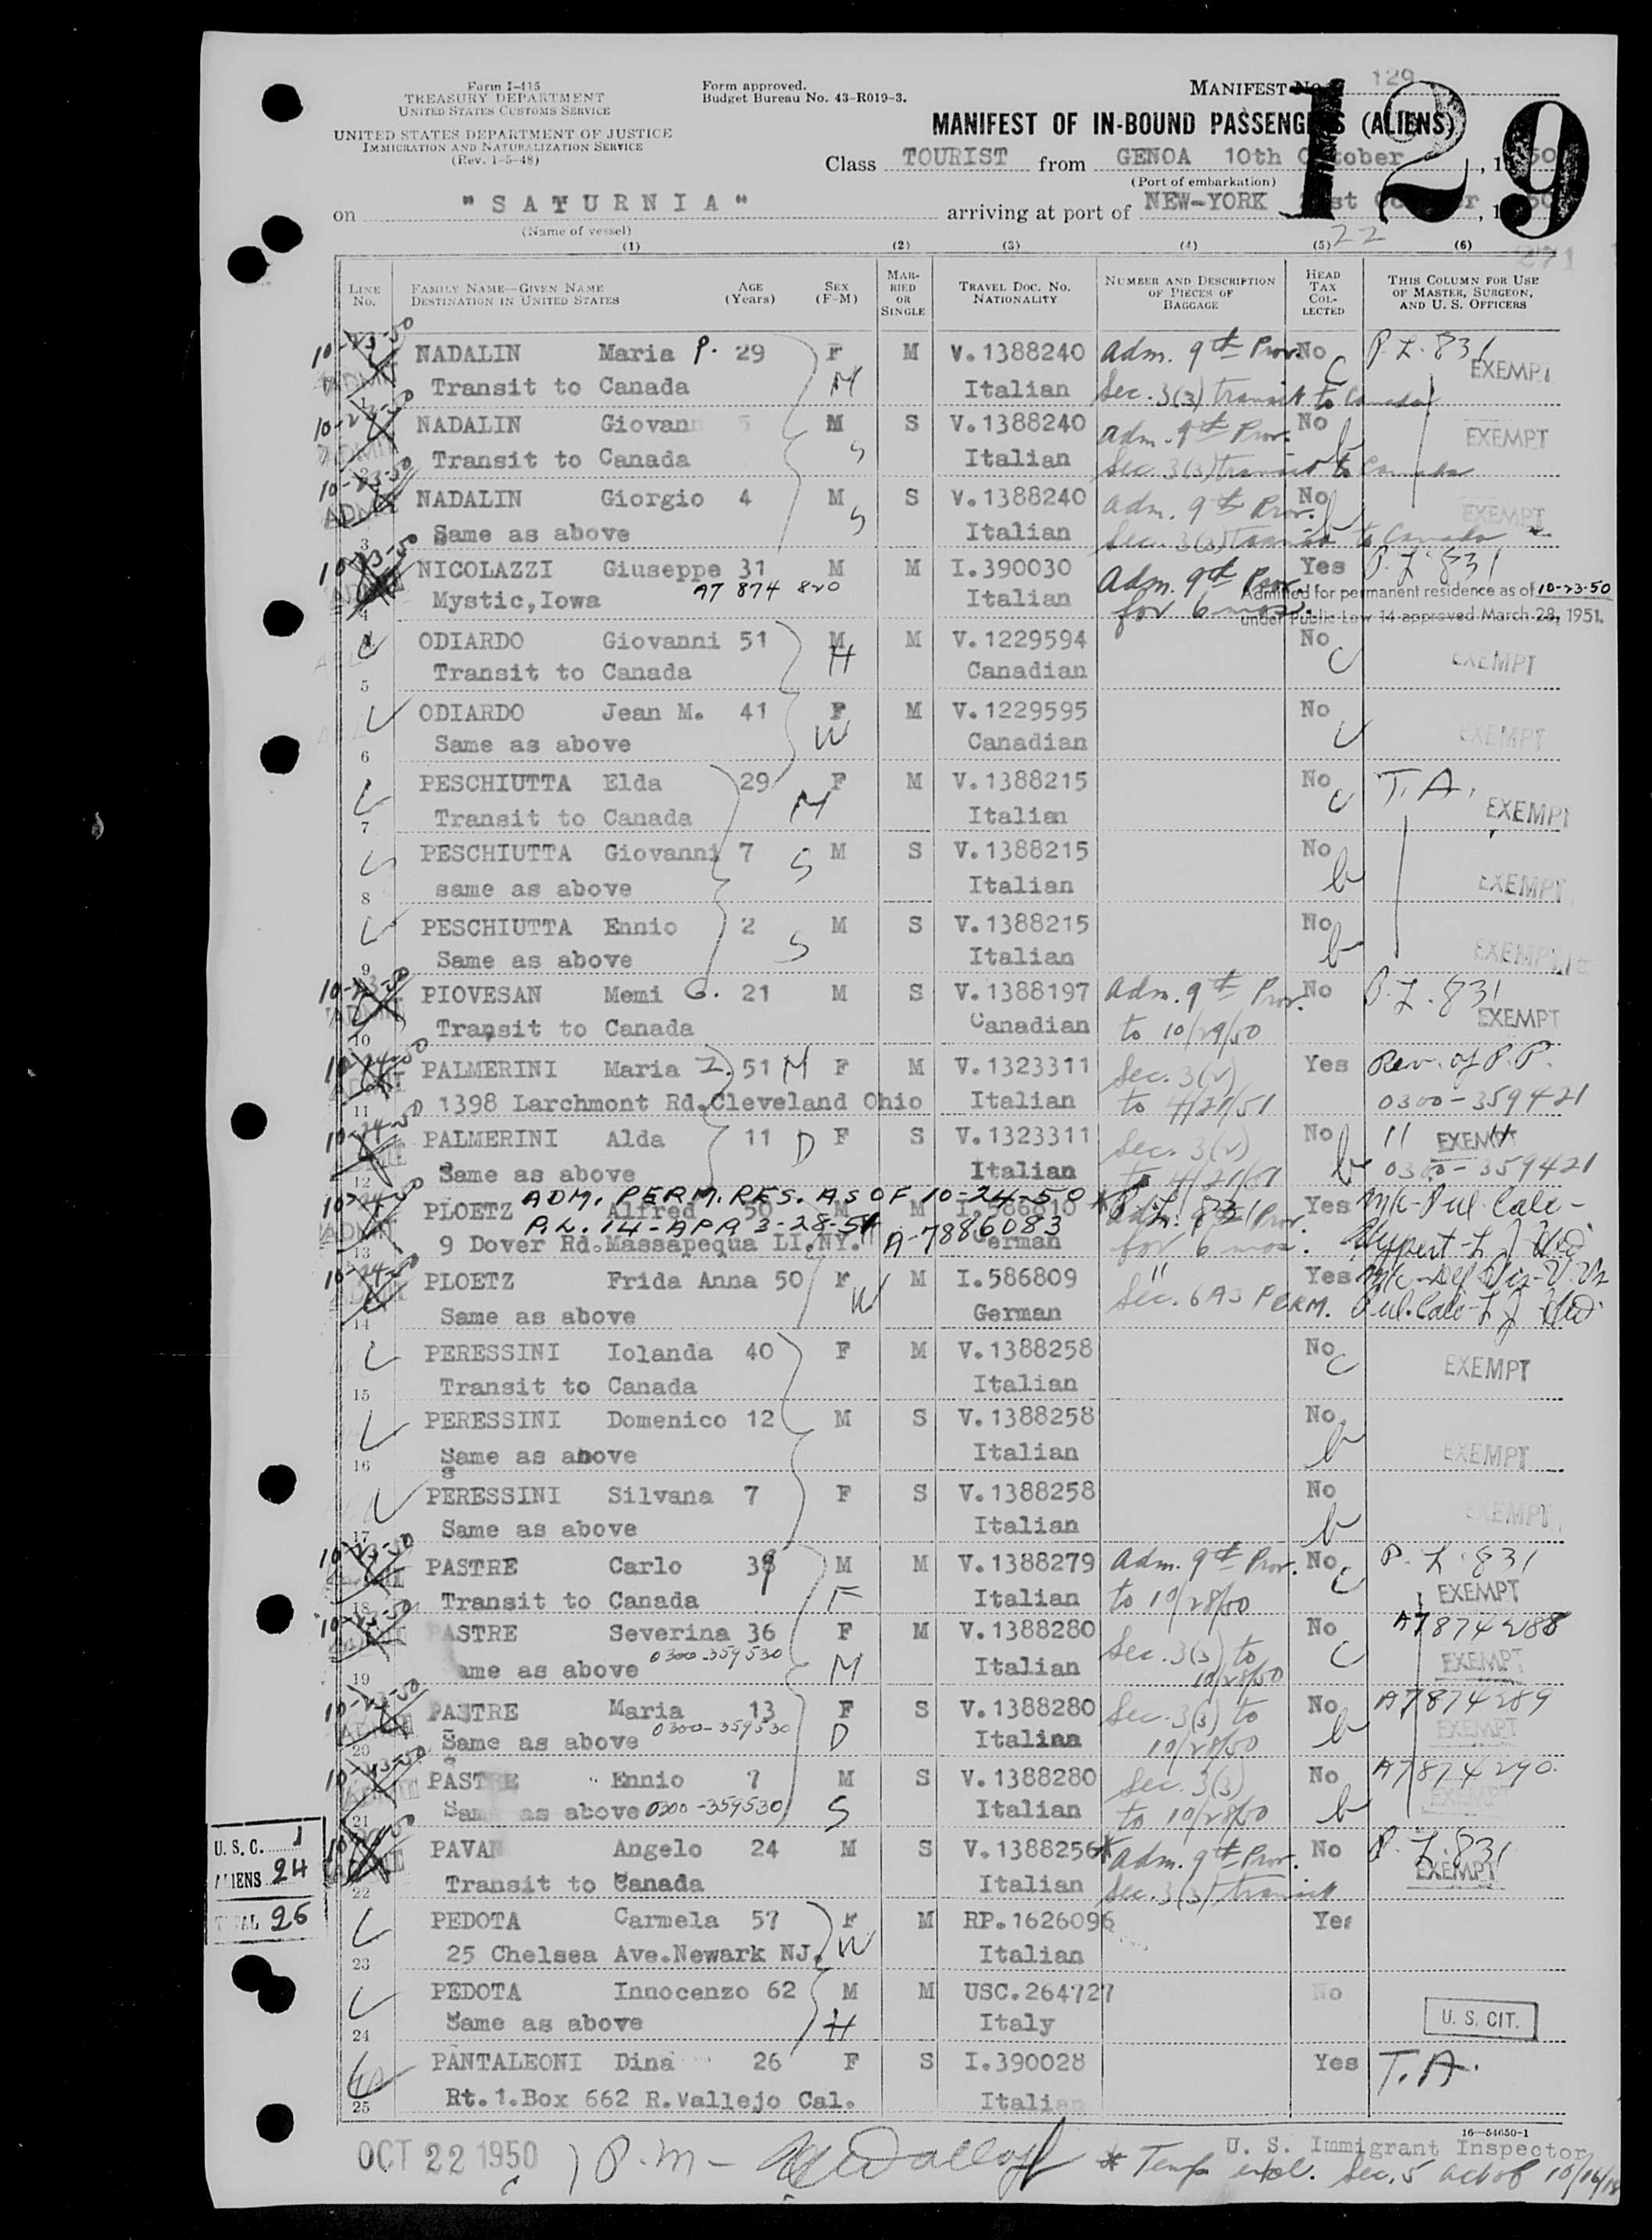 Form I-415
TREASURY DEPARTMENT
UNITED STATES CUSTOMS SERVICE
UNITED STATES DEPARTMENT OF JUSTICE
IMMIGRATION AND NATURALIZATION SERVICE
(Rev. 1-5-48)
Form approved.
Budget Bureau No. 43-R019-3.
MANIFEST No. 129
129
MANIFEST OF IN-BOUND PASSENGERS (ALIENS)
Class TOURIST from GENOA 10th October, 1950
(Port of embarkation)
on "SATURNIA" arriving at port of NEW-YORK 21st October, 1950
(Name of vessel)
22
271
(1) (2) (3) (4) (5) (6)
LINE No. FAMILY NAME—GIVEN NAME DESTINATION IN UNITED STATES AGE (Years) SEX (F-M) MARRIED OR SINGLE TRAVEL DOC. No. NATIONALITY NUMBER AND DESCRIPTION OF PIECES OF BAGGAGE HEAD TAX COLLECTED THIS COLUMN FOR USE OF MASTER, SURGEON, AND U. S. OFFICERS
10-23-50 NADALIN Maria P. 29 F M V.1388240 Adm. 9th Prov. No c P.L. 831 EXEMPT
1 Transit to Canada M Italian Sec. 3(3) transit to Canada
10-23-50 NADALIN Giovann 5 M S V.1388240 Adm. 9th Prov. No b EXEMPT
2 Transit to Canada S Italian Sec. 3(3) transit to Canada
10-23-50 NADALIN Giorgio 4 M S V.1388240 Adm. 9th Prov. No b EXEMPT
3 Same as above S Italian Sec. 3(3) transit to Canada
10-23-50 NICOLAZZI Giuseppe 31 M M I.390030 Adm. 9th Prov. Yes P.L. 831
4 Mystic,Iowa A7 874 820 Italian for 6 mos. Admitted for permanent residence as of 10-23-50
under Public Law 14 approved March 28, 1951.
ODIARDO Giovanni 51 M M V.1229594 No c EXEMPT
5 Transit to Canada H Canadian
ODIARDO Jean M. 41 F M V.1229595 No c EXEMPT
6 Same as above W Canadian
PESCHIUTTA Elda 29 F M V.1388215 No c T.A. EXEMPT
7 Transit to Canada M Italian
PESCHIUTTA Giovanni 7 S M S V.1388215 No b EXEMPT
8 same as above Italian
PESCHIUTTA Ennio 2 S M S V.1388215 No b EXEMPT
9 Same as above Italian
10-23-50 PIOVESAN Memi G. 21 M S V.1388197 Adm. 9th Prov. No P.L. 831 EXEMPT
10 Transit to Canada Canadian to 10/29/50
10-24-50 PALMERINI Maria Z. 51 M F M V.1323311 Sec. 3(2) Yes Rev. of P.P.
11 1398 Larchmont Rd.Cleveland Ohio Italian to 4/21/51 0300-359421
10-24-50 PALMERINI Alda 11 D F S V.1323311 Sec. 3(2) No b " EXEMPT "
12 Same as above Italian to 4/21/51 0300-359421
ADM. PERM. RES. AS OF 10-24-50 * P.L. 831
10-24-50 PLOETZ Alfred 50 M M I.586810 Adm. 9th Prov. Yes
P.L. 14 - APP 3-28-51 A-7886083
13 9 Dover Rd.Massapequa LI.NY. German for 6 mos.
10-24-50 PLOETZ Frida Anna 50 F M I.586809 " Yes
14 Same as above W German Sec. 6A3 PERM.
PERESSINI Iolanda 40 F M V.1388258 No c EXEMPT
15 Transit to Canada Italian
PERESSINI Domenico 12 M S V.1388258 No b EXEMPT
16 Same as above Italian
PERESSINI Silvana 7 F S V.1388258 No b EXEMPT
17 Same as above Italian
10-23-50 PASTRE Carlo 39 M M V.1388279 Adm. 9th Prov. No c P.L. 831 EXEMPT
18 Transit to Canada F Italian to 10/28/50
10-23-50 PASTRE Severina 36 F M V.1388280 Sec. 3(3) to No c A7874288 EXEMPT
19 ame as above 0300-359530 M Italian 10/28/50
10-23-50 PASTRE Maria 13 F S V.1388280 Sec. 3(3) to No b A7874289 EXEMPT
20 Same as above 0300-359530 D Italian 10/28/50
10-23-50 PASTRE Ennio 7 M S V.1388280 Sec. 3(3) No b A7874290 EXEMPT
21 Same as above 0300-359530 S Italian to 10/28/50
U.S.C. 1
ALIENS 24
TOTAL 25
PAVAN Angelo 24 M S V.1388256* Adm. 9th Prov. No P.L. 831 EXEMPT
22 Transit to Canada Italian Sec. 3(3) transit
PEDOTA Carmela 57 F M RP.1626096 Yes
23 25 Chelsea Ave.Newark NJ. W Italian
PEDOTA Innocenzo 62 M M USC.264727 No
24 Same as above H Italy U. S. CIT.
PANTALEONI Dina 26 F S I.390028 Yes T.A.
25 Rt.1.Box 662 R.Vallejo Cal. Italian
16—54650-1
OCT 22 1950 1 P.M — U. S. Immigrant Inspector
* Temp excl. Sec. 5 act of 10/16/18